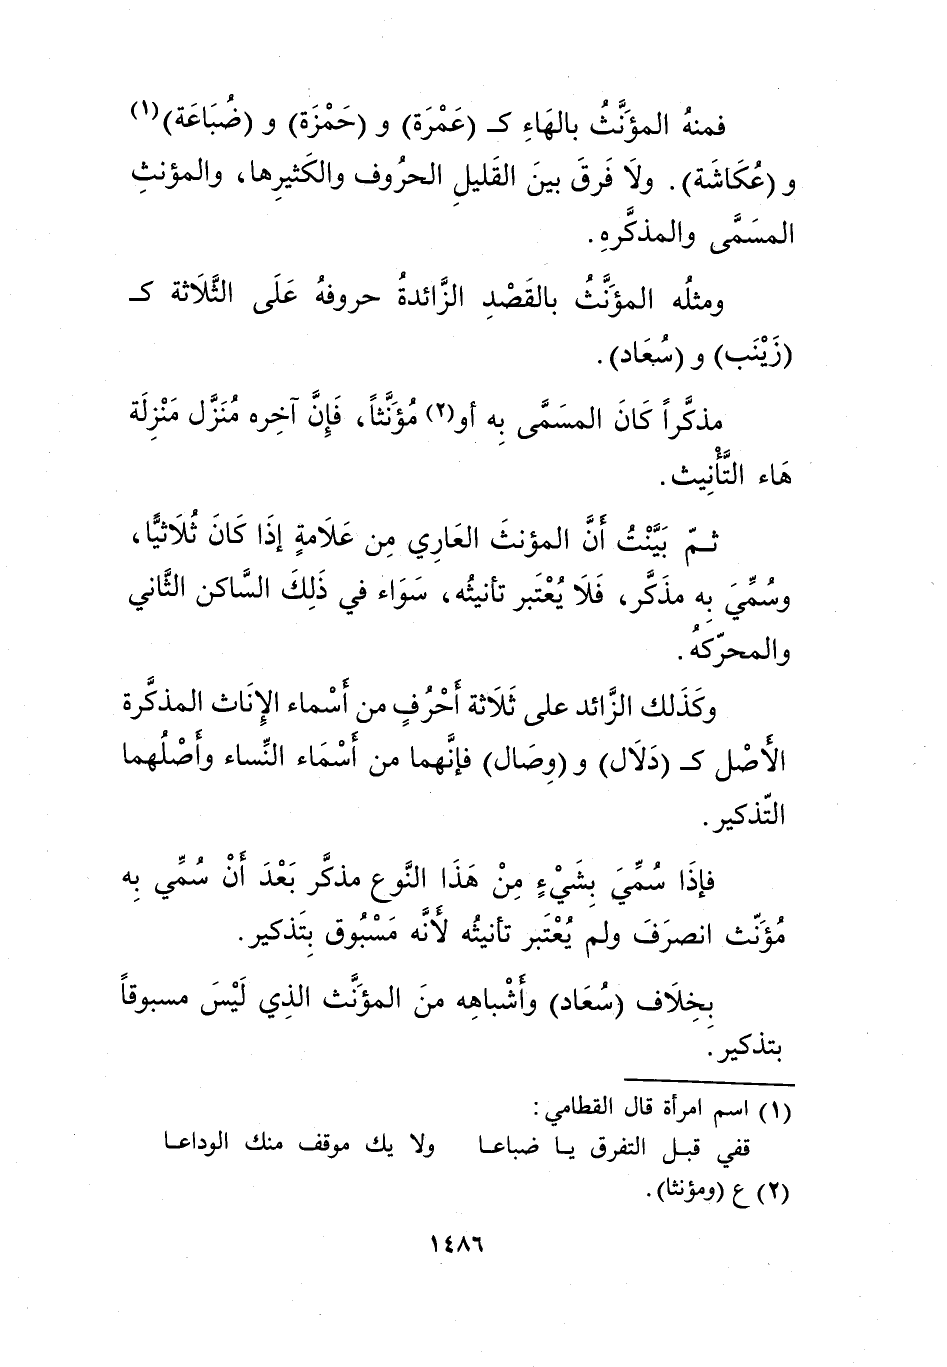 فمنهُ المؤَنَّثُ بالهَاءِ كـ (عَمْرَة) و (حَمْزَة) و (ضُبَاعَة)(١)
و (عُكَاشَة). ولَا فَرقَ بينَ القَليلِ الحرُوف والكَثيرِها، والمؤنثِ
المسَمَّى والمذكَّرهِ.
ومثلُه المؤَنَّثُ بالقَصْدِ الزَّائدةُ حروفهُ عَلَى الثَّلَاثة كـ
(زَيْنَب) و (سُعَاد).
مذكَّراً كَانَ المسَمَّى بِه أو(٢) مُؤَنَّثاً، فَإِنَّ آخِره مُنَزَّل مَنْزِلَة
هَاء التَّأْنِيث.
ثـمّ بَيَّنْتُ أَنَّ المؤنثَ العَارِي مِن عَلَامةٍ إذَا كَانَ ثُلَاثيًّا،
وسُمِّيَ بِه مذَكَّر، فَلَا يُعْتَبر تأنيثُه، سَوَاء في ذَلِكَ السَّاكن الثَّاني
والمحرّكهُ.
وكَذَلك الزَّائد على ثَلَاثة أَحْرُفٍ من أَسْماء الإنَاث المذكَّرة
الأَصْل كـ (دَلَال) و (وِصَال) فإنَّهما من أَسْمَاء النِّساء وأَصْلُهما
التّذكير.
فإذَا سُمِّيَ بِشَيْءٍ مِنْ هَذَا النَّوع مذكَّر بَعْدَ أَنْ سُمِّي بِه
مُؤَنّث انصرَفَ ولم يُعْتَبر تأنيثُه لأَنَّه مَسْبُوق بِتَذكير.
بِخِلَاف (سُعَاد) وأَشْباهِه منَ المؤنَّث الذِي لَيْسَ مسبوقاً
بتذكير.
(١) اسم امرأة قال القطامي:
قفي قبـل التفرق يـا ضباعـا ولا يك موقف منك الوداعـا
(٢) ع (ومؤنثا).
١٤٨٦